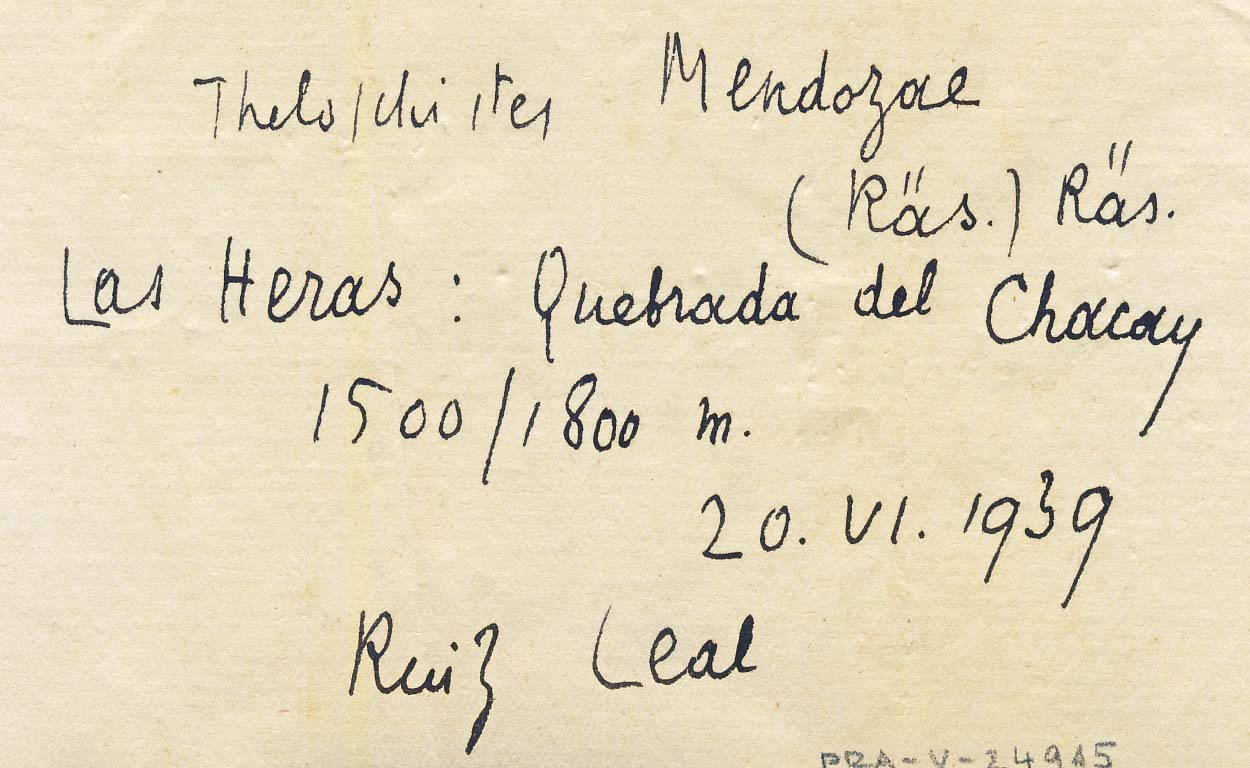 Theloschistes Mendozae
(Räs.) Räs.
Las Heras : Quebrada del Chacay
1500/1800 m.
20. VI. 1939
Ruiz Leal
PRA-V-24915